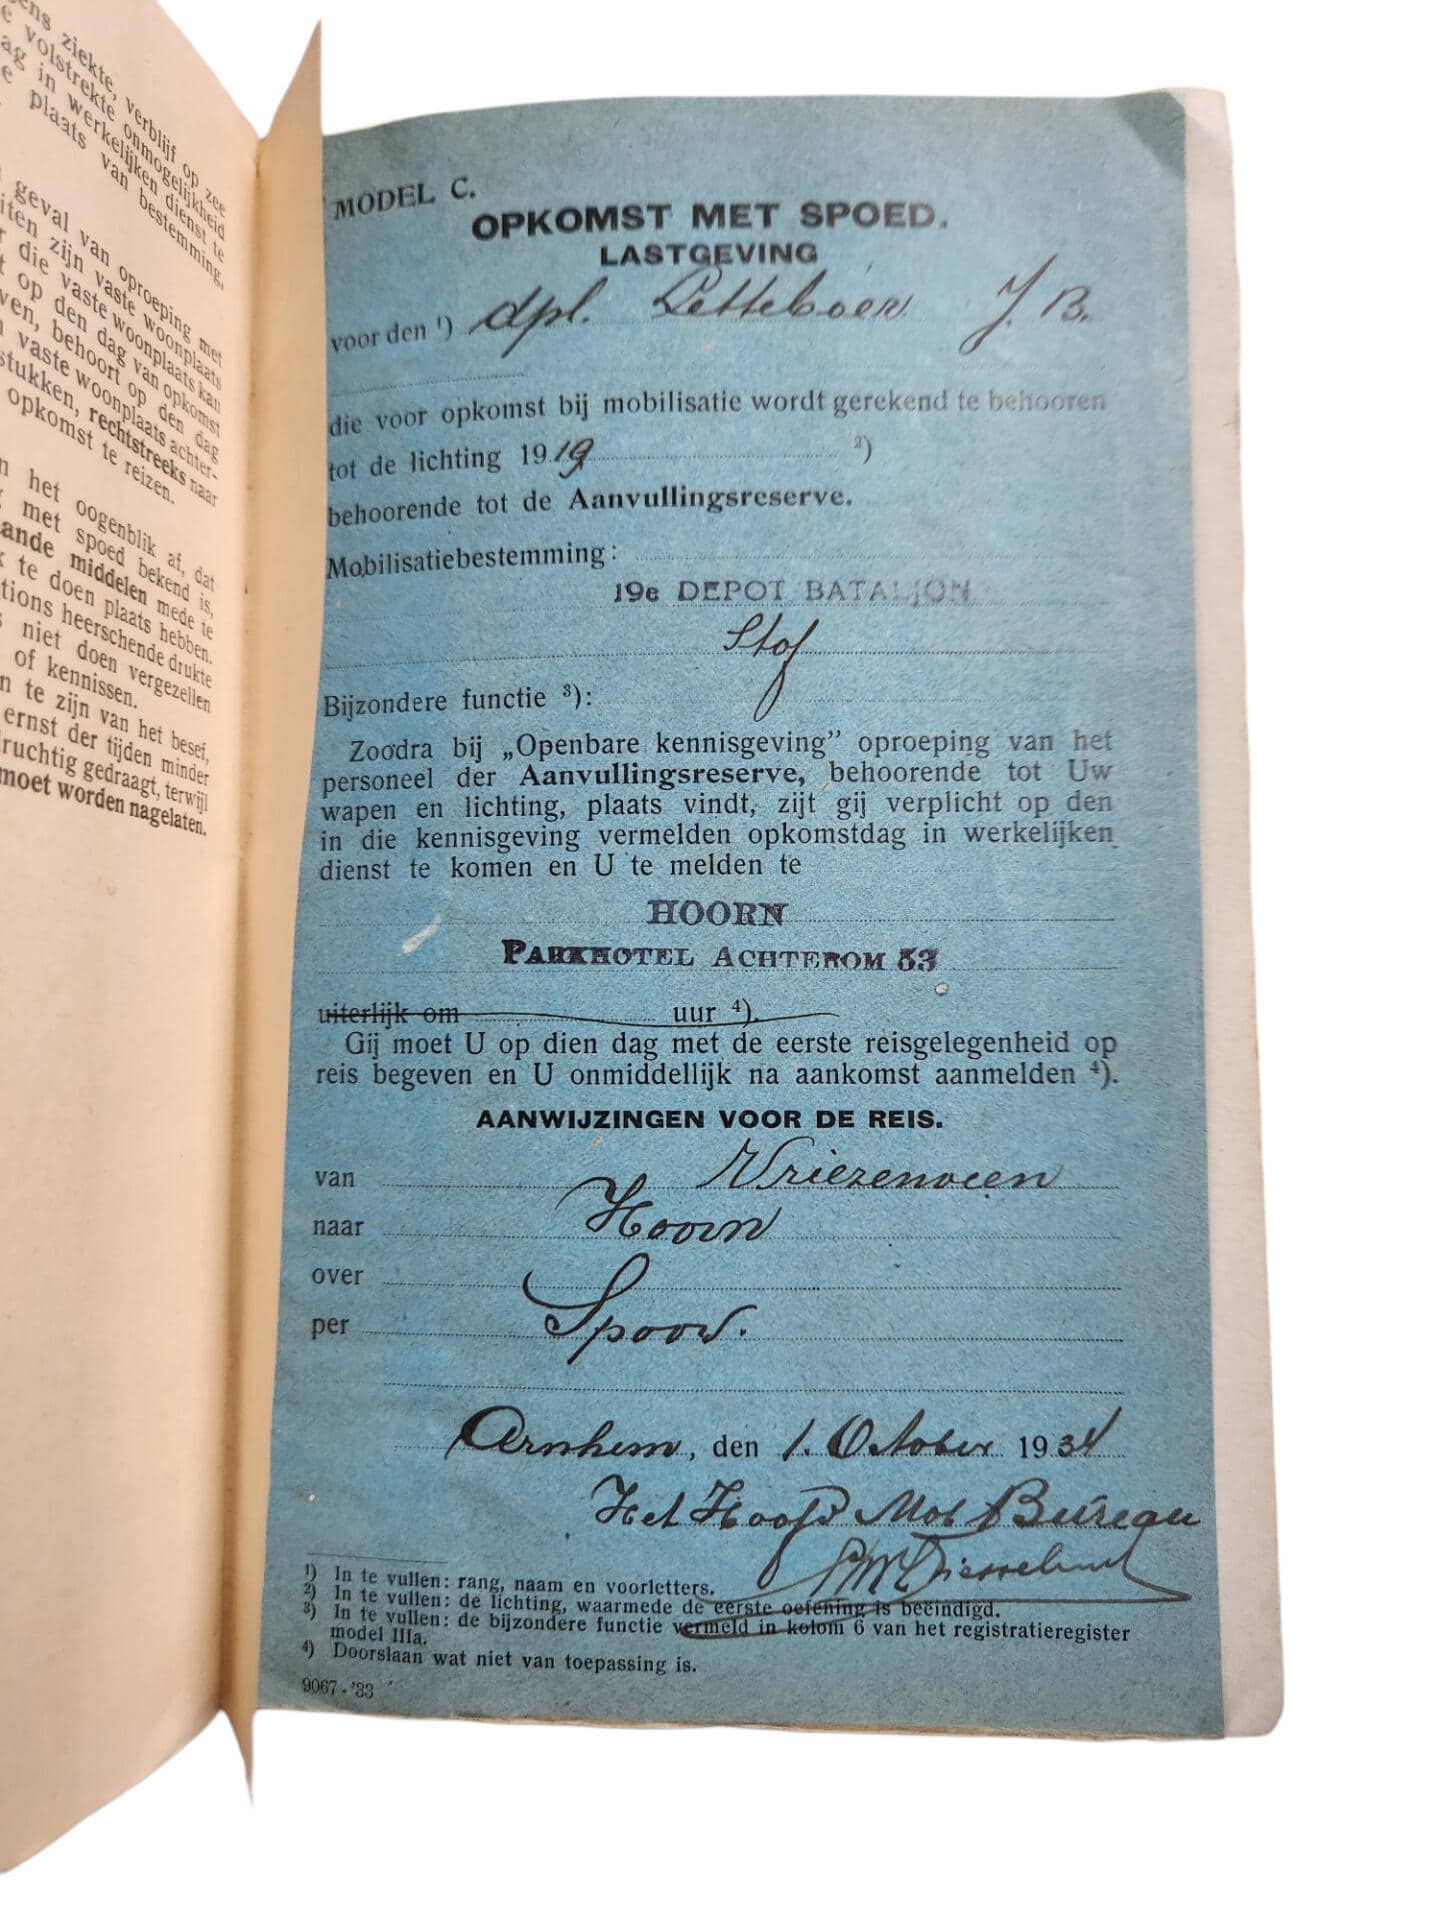 ens ziekte, verblijf op zee
e volstrekte onmogelijkheid
ag in werkelijken dienst te
e plaats van bestemming,
geval van oproeping met
iten zijn vaste woonplaats
r die vaste woonplaats kan
t op den dag van opkomst
ven, behoort op den dag
n vaste woonplaats achter-
stukken, rechtstreeks naar
opkomst te reizen.
n het oogenblik af, dat
g met spoed bekend is,
aande middelen mede te
k te doen plaats hebben.
tions heerschende drukte
s niet doen vergezellen
of kennissen.
n te zijn van het besef,
ernst der tijden minder
ruchtig gedraagt, terwijl
moet worden nagelaten.
MODEL C.
OPKOMST MET SPOED.
LASTGEVING
voor den ¹) dpl. Letteboer J. B.
die voor opkomst bij mobilisatie wordt gerekend te behooren
tot de lichting 1919 ²)
behoorende tot de Aanvullingsreserve.
Mobilisatiebestemming:
19e DEPOT BATALJON
Staf
Bijzondere functie ³):
Zoodra bij „Openbare kennisgeving” oproeping van het
personeel der Aanvullingsreserve, behoorende tot Uw
wapen en lichting, plaats vindt, zijt gij verplicht op den
in die kennisgeving vermelden opkomstdag in werkelijken
dienst te komen en U te melden te
HOORN
PARKHOTEL ACHTEROM 53
uiterlijk om uur ⁴).
Gij moet U op dien dag met de eerste reisgelegenheid op
reis begeven en U onmiddellijk na aankomst aanmelden ⁴).
AANWIJZINGEN VOOR DE REIS.
van Vriezenveen
naar Hoorn
over
per Spoor.
Arnhem, den 1. October 1934
Het Hoofd Mob Bureau
¹) In te vullen: rang, naam en voorletters.
²) In te vullen: de lichting, waarmede de eerste oefening is beëindigd.
³) In te vullen: de bijzondere functie vermeld in kolom 6 van het registratieregister
model IIIa.
⁴) Doorslaan wat niet van toepassing is.
9067 - '33